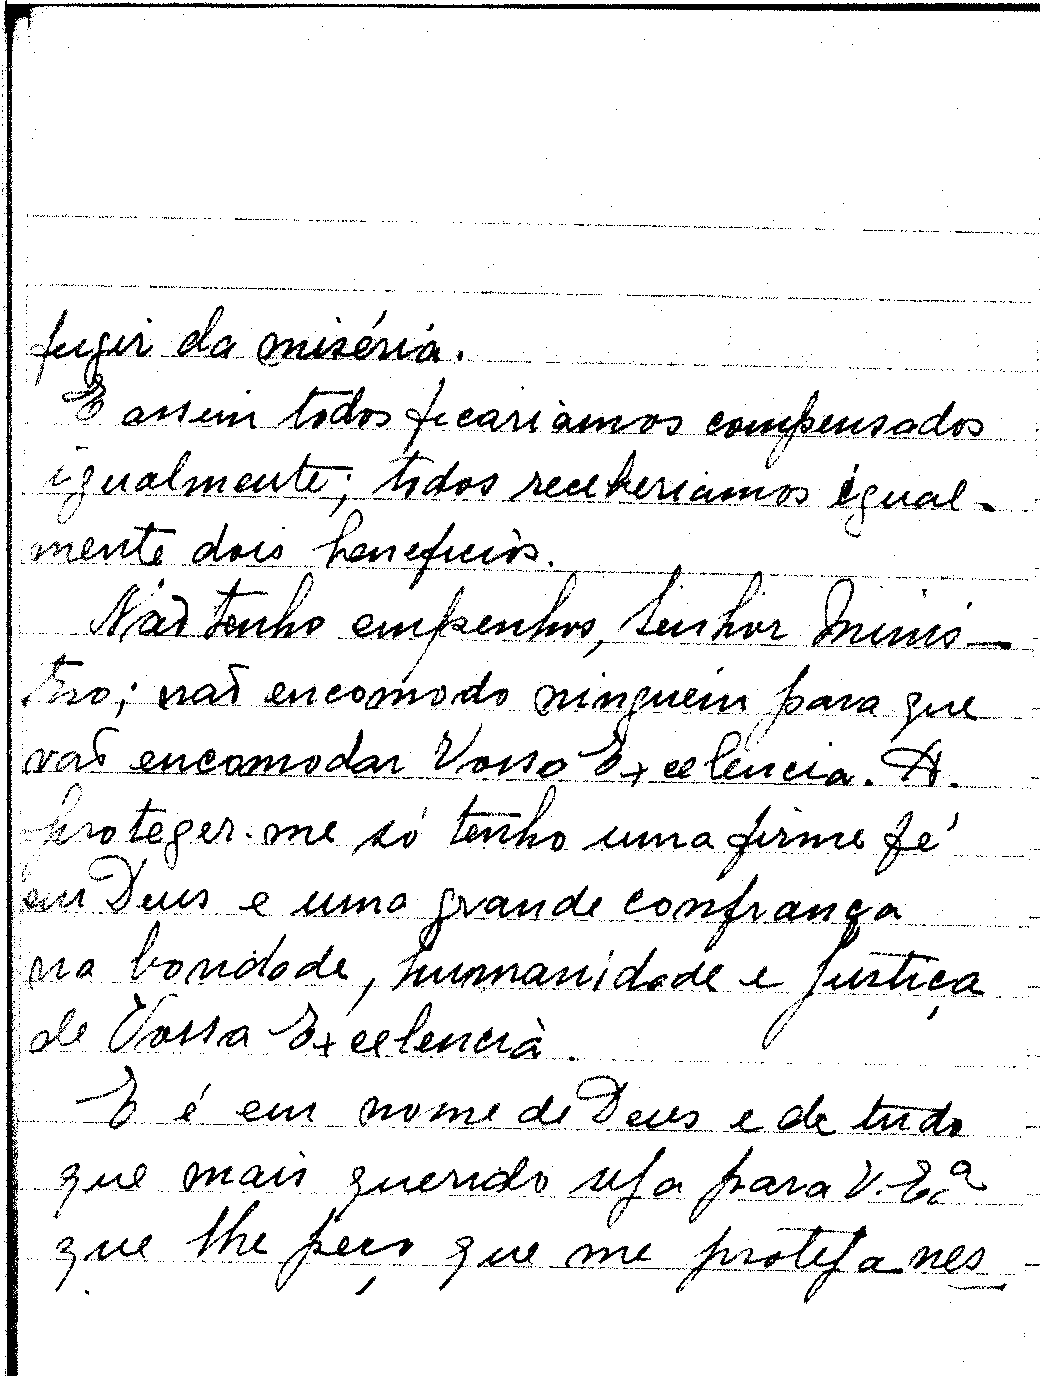 fugir da miséria.
E assim todos ficariamos compensados
igualmente; todos receberiamos igual-
mente dois beneficios.
Não tenho empenhos, Senhor Minis-
tro; não encomodo ninguem para que
vão encomodar Vossa Excelencia. A
proteger-me só tenho uma firme fé
em Deus e uma grande confiança
na bondade, humanidade e justiça
de Vossa Excelencia.
E é em nome de Deus e de tudo
que mais querido seja para V. Ex.ª
que lhe peço que me proteja nes